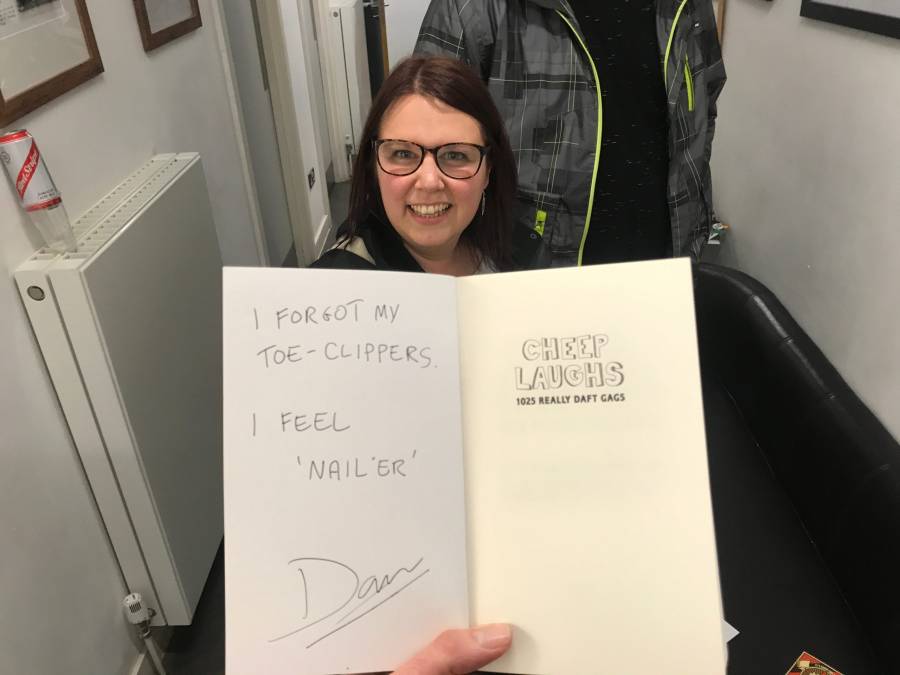 Red Stripe
I FORGOT MY
TOE-CLIPPERS.
I FEEL
'NAIL'ER'
Dan
CHEEP
LAUGHS
1025 REALLY DAFT GAGS